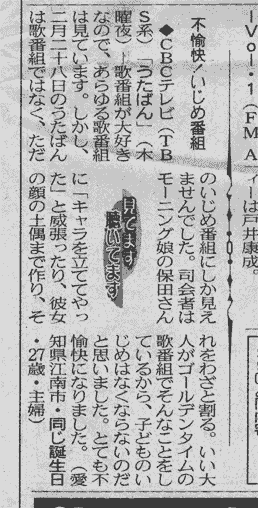 ーVol・1（FM A
ィーは戸井康成。
不愉快！いじめ番組
◆CBCテレビ（TB
S系）「うたばん」（木
曜夜）　歌番組が大好き
なので、あらゆる歌番組
は見ています。しかし、
二月二十八日のうたばん
は歌番組ではなく、ただ
のいじめ番組にしか見え
ませんでした。司会者は
モーニング娘の保田さん
に「キャラを立ててやっ
た」と威張ったり、彼女
の顔の土偶まで作り、そ
れをわざと割る。いい大
人がゴールデンタイムの
歌番組でそんなことをし
ているから、子どものい
じめはなくならないのだ
と思いました。とても不
愉快になりました。（愛
知県江南市・同じ誕生日
・27歳・主婦）
見てます
聴いてます